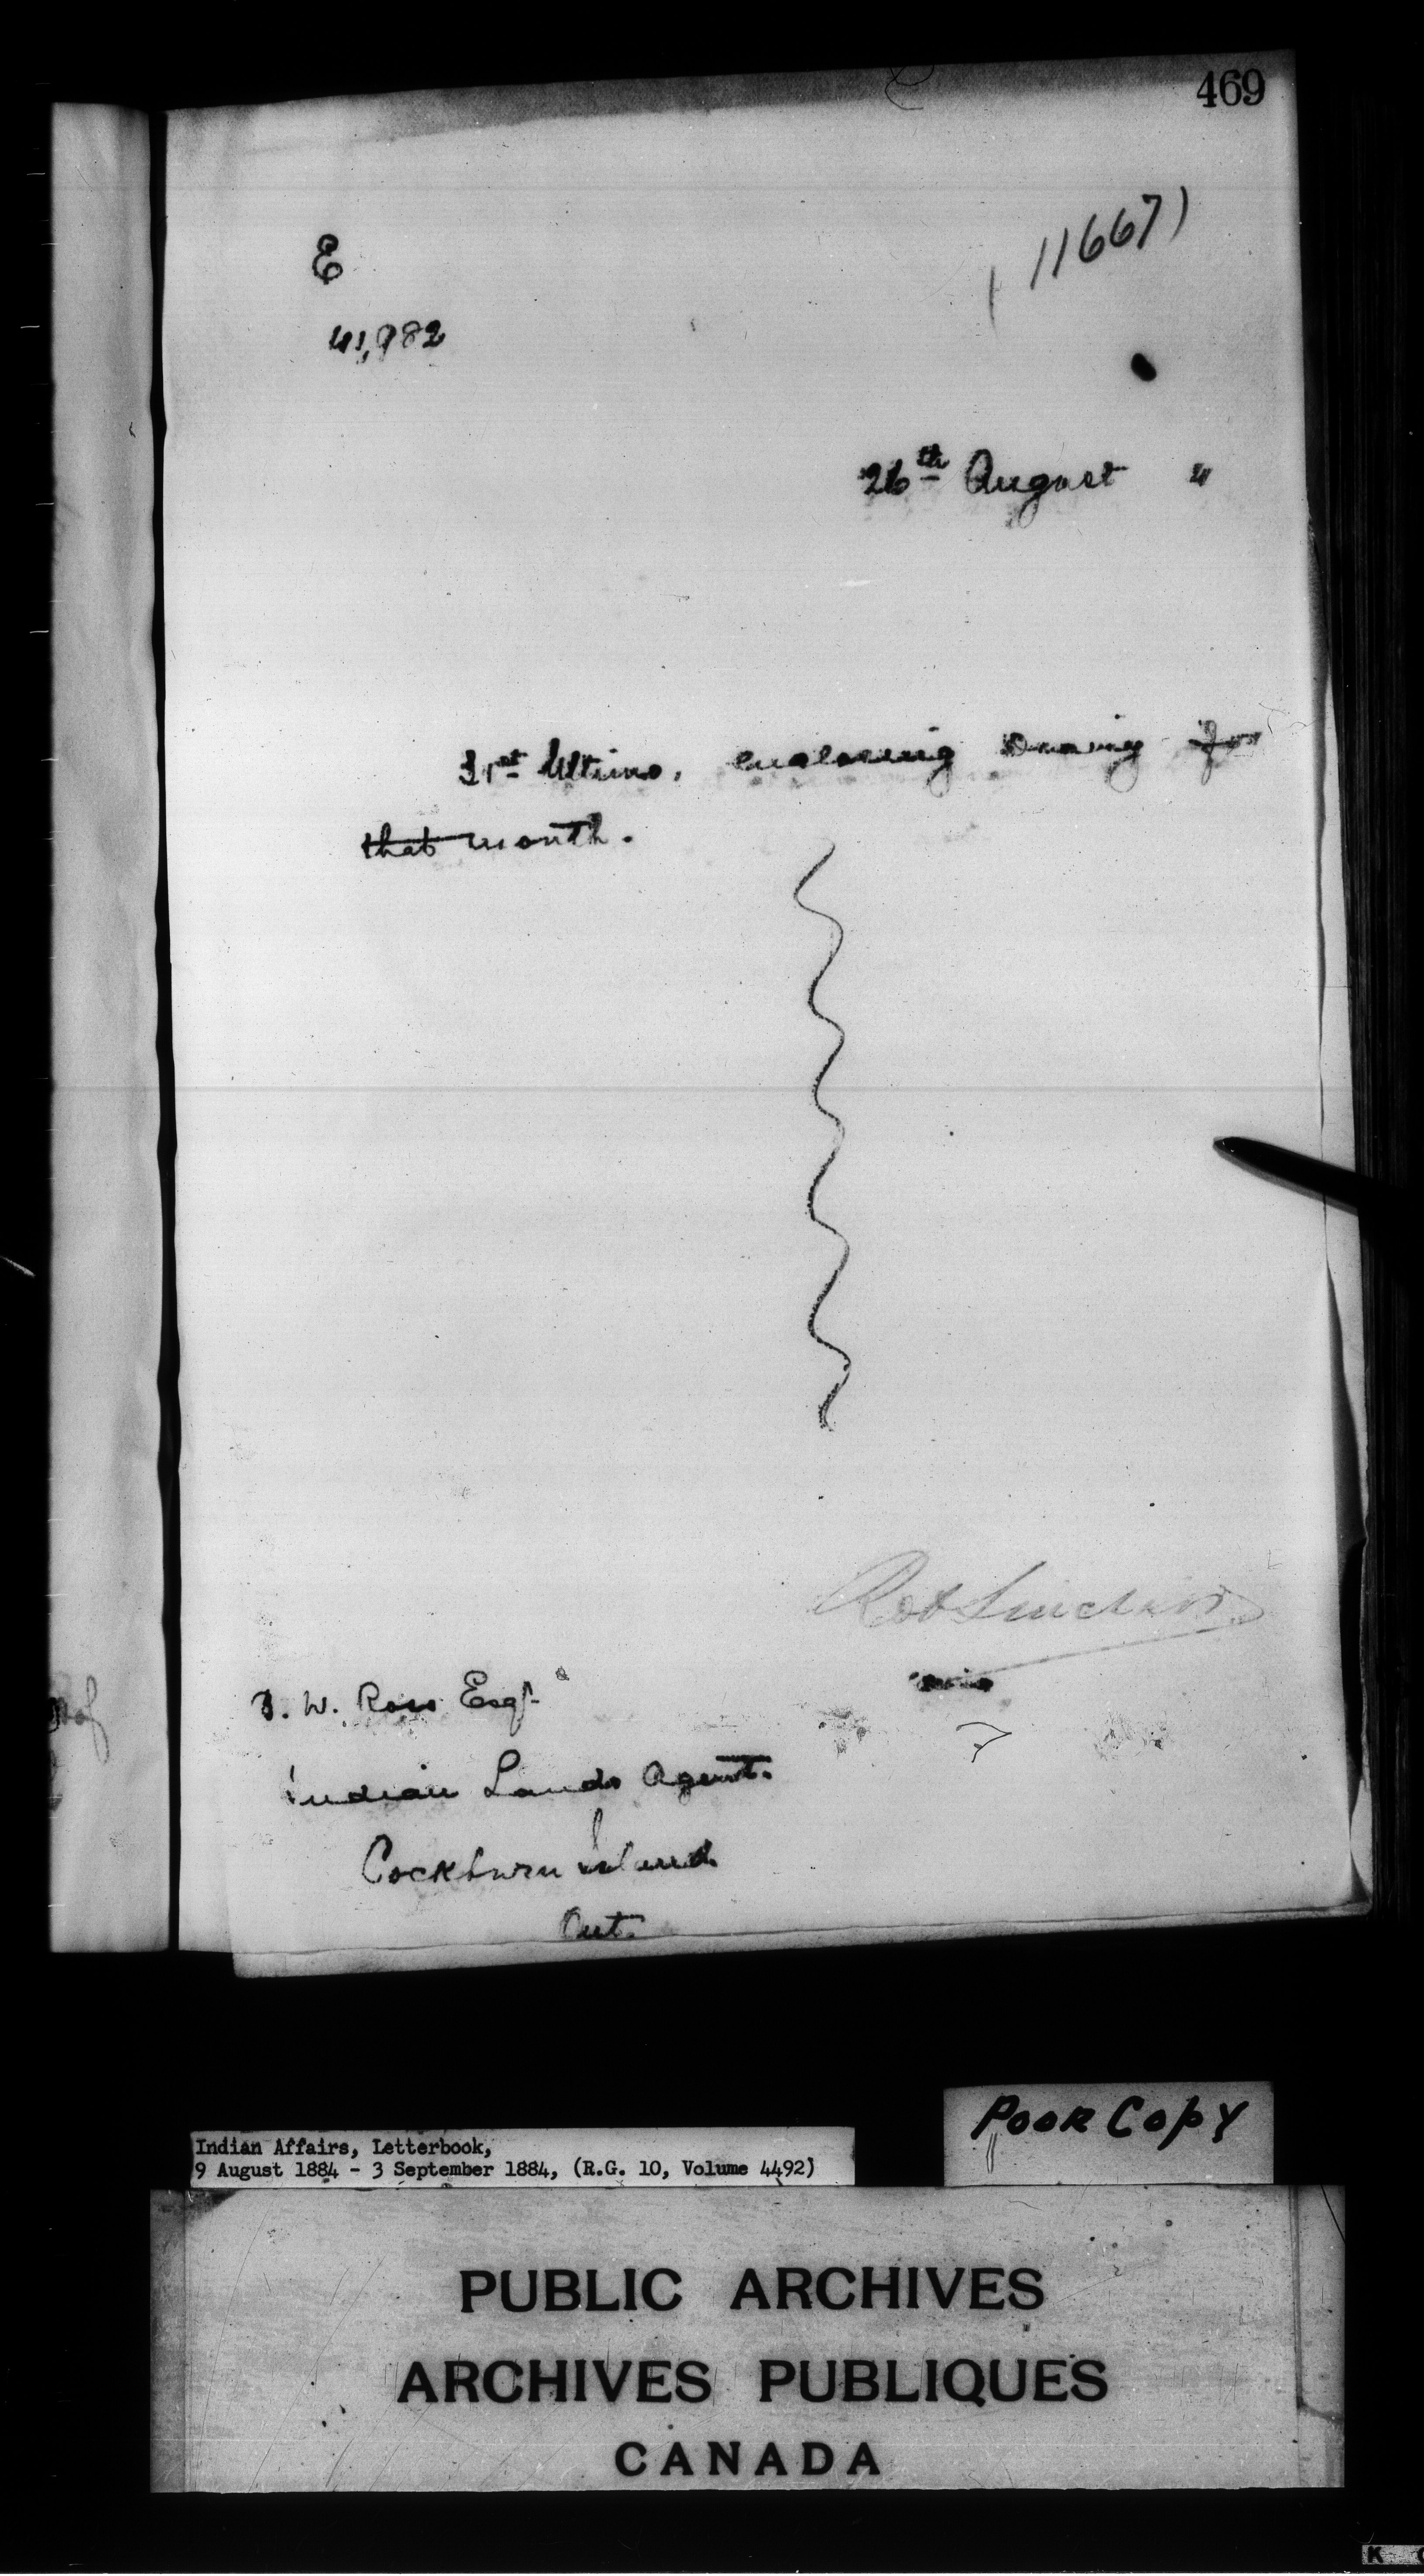 469
11667)
E
41,982
26th August "
31st Ultimo, enclosing for
that month.
Robt Sinclair
B. W. Ross Esqr
Indian Lands Agent.
Cockburn Island
Ont.
Poor Copy
Indian Affairs, Letterbook,
9 August 1884 - 3 September 1884, (R.G. 10, Volume 4492)
PUBLIC ARCHIVES
ARCHIVES PUBLIQUES
CANADA